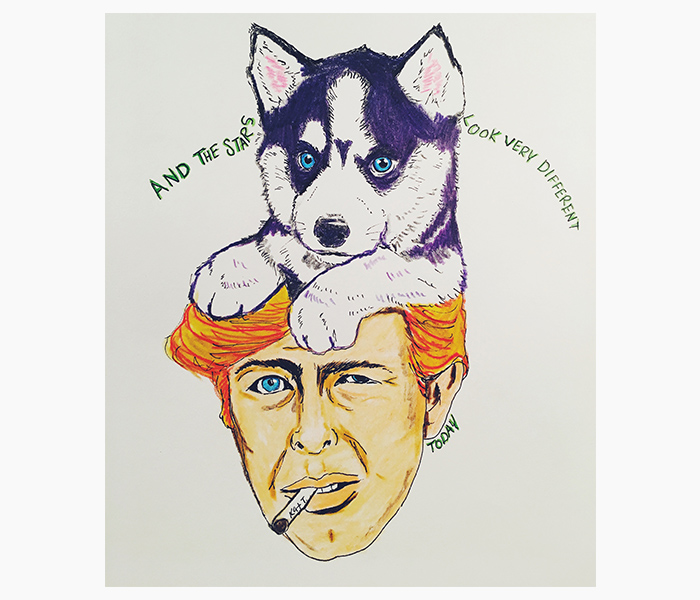 AND THE STARS
LOOK VERY DIFFERENT
TODAY